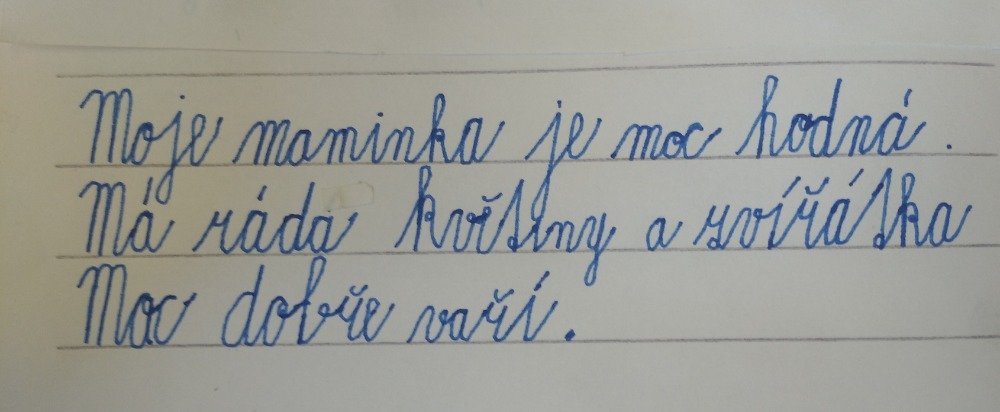 Moje maminka je moc hodná.
Má ráda květiny a zvířátka
Moc dobře vaří.